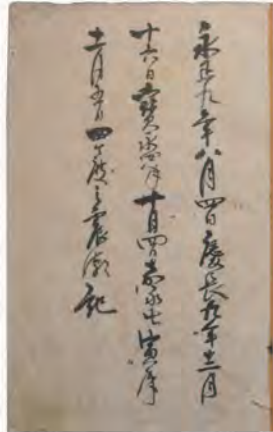 永正九年八月四日慶長九年十二月
十六日寳永四年十月四日嘉永七寅年
十一月五日四ヶ度之震潮記